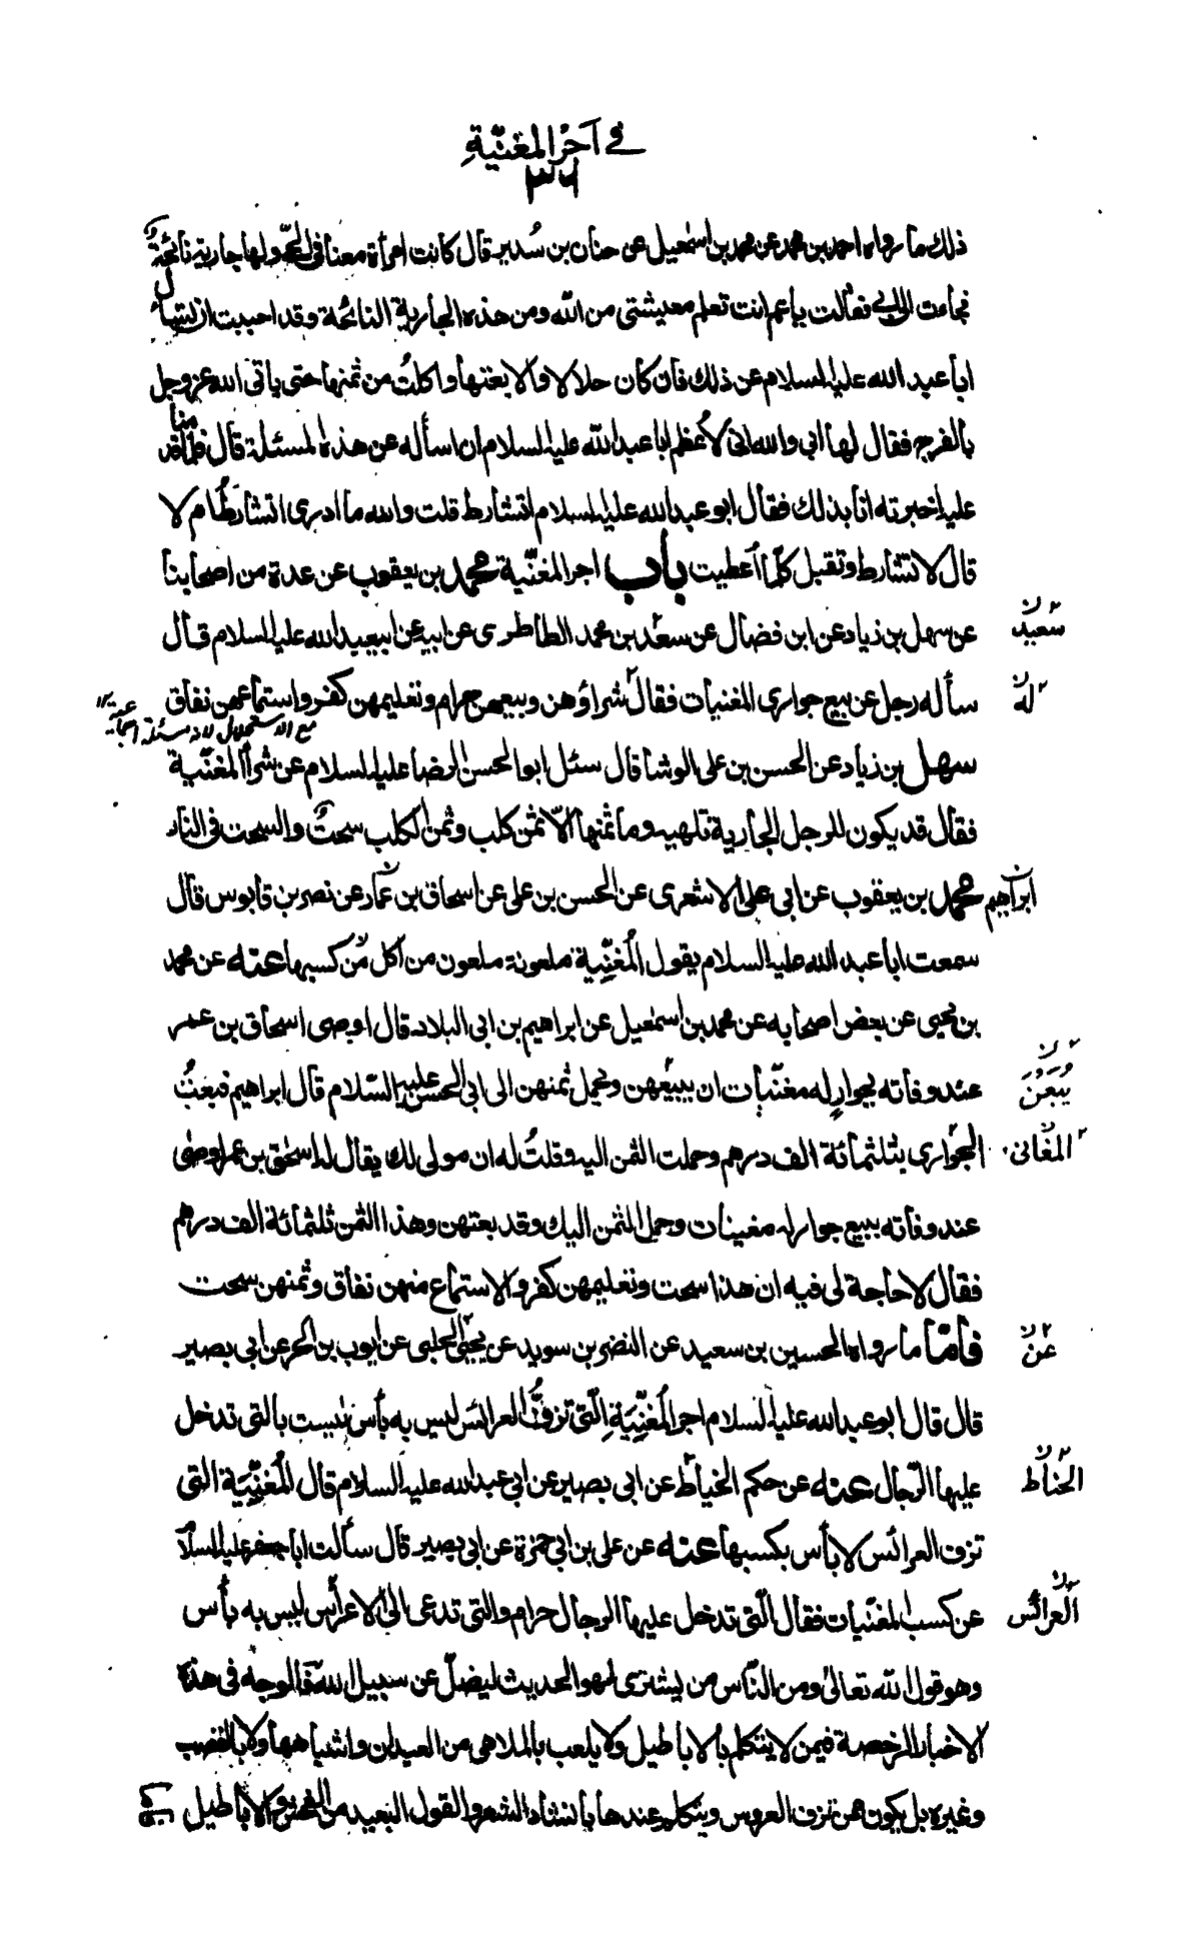 في اجر المغنّيةِ
٣٦
ذلك ما رواه احمد بن محمد عن محمد بن اسمعيل عن حنان بن سُدير قال كانت امرأة معنا فى الحىّ ولها جارية نائحةٌ
فجاءت الى ابى فقالت يا عم انت تعلم معيشتى من اللّه ومن هذه الجارية النائحة وقد احببت ان تسأل
ابا عبد الله عليه السلام عن ذلك فان كان حلالا والا بعتها واكلتُ من ثمنها حتى ياتى الله عز وجل
بالفرج فقال لها ابى والله انى لأُعظم ابا عبد اللّه عليه السلام ان اسأله عن هذه المسئلة قال فلمّا قدمنا
عليه اخبرته انا بذلك فقال ابو عبد الله عليه السلام اتشارط قلت والله ما ادرى اتشارطُ ام لا
قال لا تشارط وتقبل كلّما اُعطيت باب اجر المغنّية محمد بن يعقوب عن عدة من اصحابنا
عن سهل بن زياد عن ابن فضال عن سعد بن محمد الطاطرى عن ابيه عن ابى عبد الله عليه السلام قال
سعيد
سأله رجل عن بيع جوارى المغنيات فقال شراؤهن وبيعهن حرام وتعليمهن كفر واستماعهن نفاق
له
مع الاستحلال لانه مسئلة اجماعية
سهل بن زياد عن الحسن بن على الوشا قال سئل ابو الحسن الرضا عليه السلام عن شراء المغنّية
فقال قد يكون للرجل الجارية تلهيه وما ثمنها الّا ثمن كلب وثمن الكلب سحتٌ والسحت فى النار
محمد بن يعقوب عن ابى على الاشعرى عن الحسن بن على عن اسحاق بن عمار عن نصر بن قابوس قال
ابراهيم
سمعت ابا عبد الله عليه السلام يقول المُغنِّية ملعونة ملعون من اكل من كسبها عنه عن محمد
بن يحيى عن بعض اصحابه عن محمد بن اسمعيل عن ابراهيم بن ابى البلاد قال اوصى اسحاق بن عمر
عند وفاته بجوارٍ له مغنّيات ان يبيعهن ويحمل ثمنهن الى ابى الحسن عليه السّلام قال ابراهيم فبعتُ
يُبَعْنَ
الجوارى بثلثمائة الف درهم وحملت الثمن اليه وقلتُ له ان مولى لك يقال له اسحٰق بن عمر اوصٰى
المغانى
عند وفاته ببيع جوار له مغينات وحمل الثمن اليك وقد بعتهن وهذا الثمن ثلثمائة الف درهم
فقال لا حاجة لى فيه ان هذا سحت وتعليمهن كفر والاستماع منهن نفاق وثمنهن سحت
فأمّا ما رواه الحسين بن سعيد عن النضر بن سويد عن يحيى الحلبى عن ايوب بن الحر عن ابى بصير
عن
قال قال ابو عبد الله عليه السلام اجر المُغنِّيَةِ الّتى تزفُّ العرائس ليس به بأس ليست بالتى تدخل
عليها الرّجال عنه عن حكم الخياط عن ابى بصير عن ابى عبد الله عليه السلام قال المُغنِّيَة التى
الحناط
تزف العرائس لا بأس بكسبها عنه عن على بن ابى حمزة عن ابى بصير قال سألت ابا جعفر عليه السلام
عن كسب المغنّيات فقال الّتى تدخل عليها الرجال حرام والتى تدعى الى الاعراس ليس به بأس
العرائس
وهو قول اللّه تعالى ومن النّاس من يشترى لهو الحديث ليضلّ عن سبيل اللّه فالوجه فى هذه
الاخبار الرخصة فيمن لا يتكلم بالاباطيل ولا يلعب بالملاهى من العيدان واشباهها ولا بالقضيب
وغيره بل يكون ممن تزف العروس ويتكلم عندها بانشاد الشعر والقول البعيد من الفحش والاباطيل